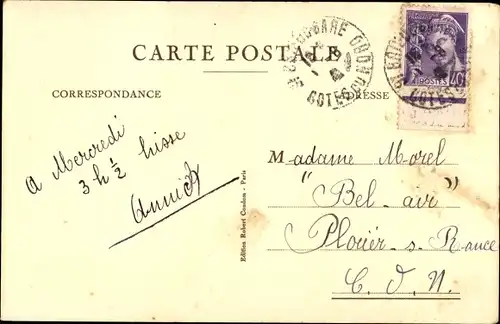 CARTE POSTALE
CORRESPONDANCE
ADRESSE
COTES DU NORD
POSTES 40
COTES
a Mercredi
3 h ½ bisse
Annick
Edition Robert Coudom - Paris
Madame Morel
"Bel-air"
Plouër-s-Rance
C.D.N.